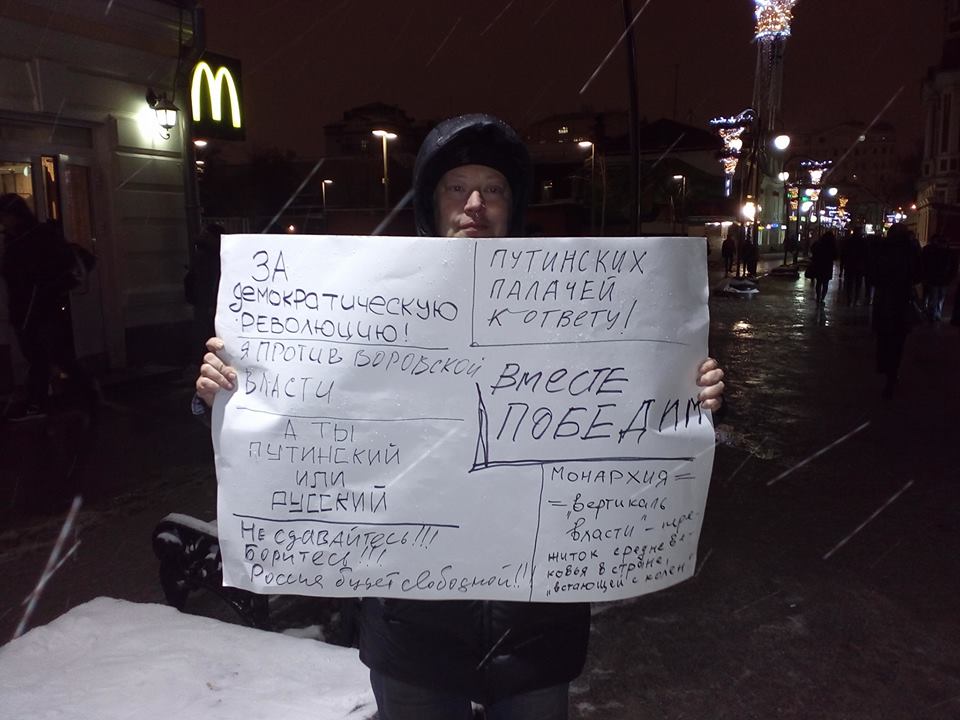 ЗА
демократическую
РЕВОЛЮЦИЮ!
Я ПРОТИВ ВОРОВСКОЙ
ВЛАСТИ
А ТЫ
ПУТИНСКИЙ
ИЛИ
РУССКИЙ
Не сдавайтесь!!!
Боритесь!!!
Россия будет свободной!!!
ПУТИНСКИХ
ПАЛАЧЕЙ
К ОТВЕТУ!
Вместе
ПОБЕДИМ
МОНАРХИЯ =
= "вертикаль
власти" - пере-
житок средневе-
ковья в стране,
"встающей с колен"
M